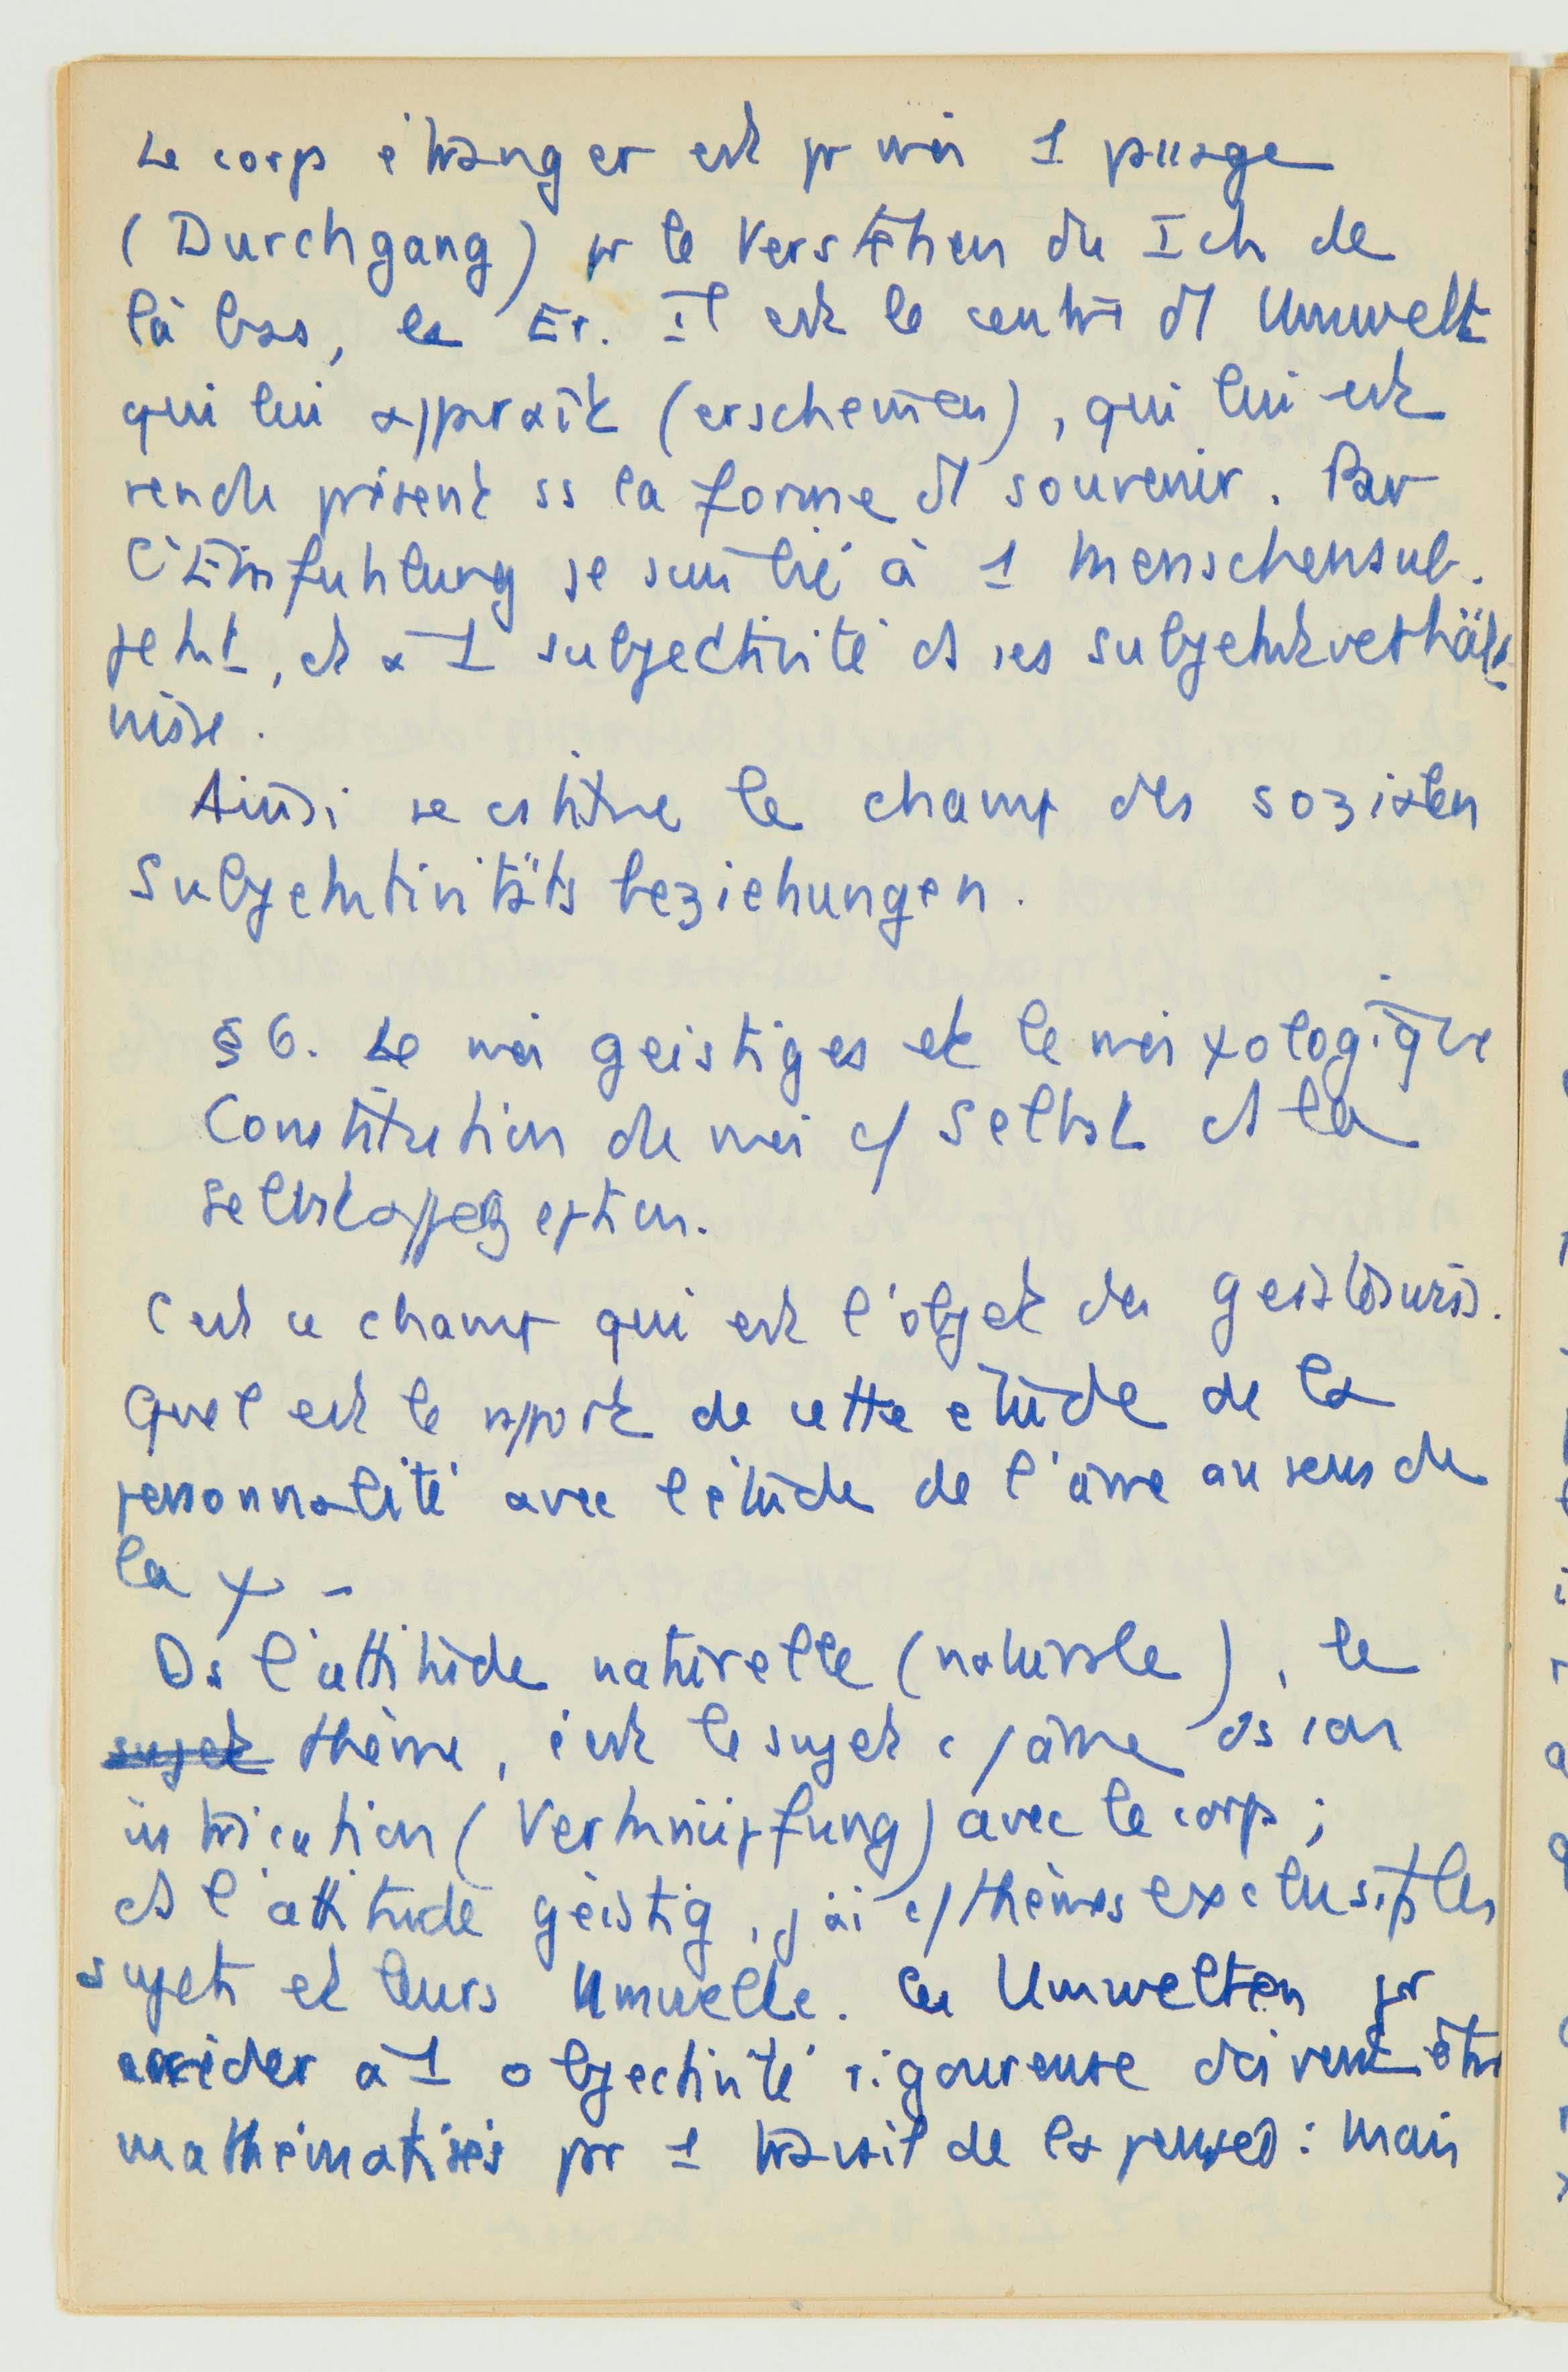 Le corps étranger est pr moi 1 passage
(Durchgang) pr le Verstehen du Ich de
là bas, le Er. Il est le centre d'1 Umwelt
qui lui apparaît (erscheinen), qui lui est
rendu présent ss la forme d'1 souvenir. Par
l'Einfuhlung je suis lié à 1 Menschensub-
jekt, et à 1 subjectivité ds ses Subjektverhält-
nisse.
Ainsi se cstitue le champ des sozialen
Subjektivitäts beziehungen.
§ 6. Le moi geistiges et le moi ψologique
Constitution du moi c/ Selbst ds la
Selbstapperzeption.
C'est ce champ qui est l'objet des Geisteswiss.
Quel est le rapport de cette étude de la
personnalité avec l'étude de l'âme au sens de
la ψ -
Ds l'attitude naturelle (naturale), le
sujet thème, c'est le sujet c/ âme ds son
intrication (Verknüpfung) avec le corps ;
ds l'attitude geistig, j'ai c/ thèmes exclusifs les
sujets et leurs Umwelte. Les Umwelten pr
accéder à 1 objectivité rigoureuse doivent être
mathématisés par 1 travail de la pensée : mais